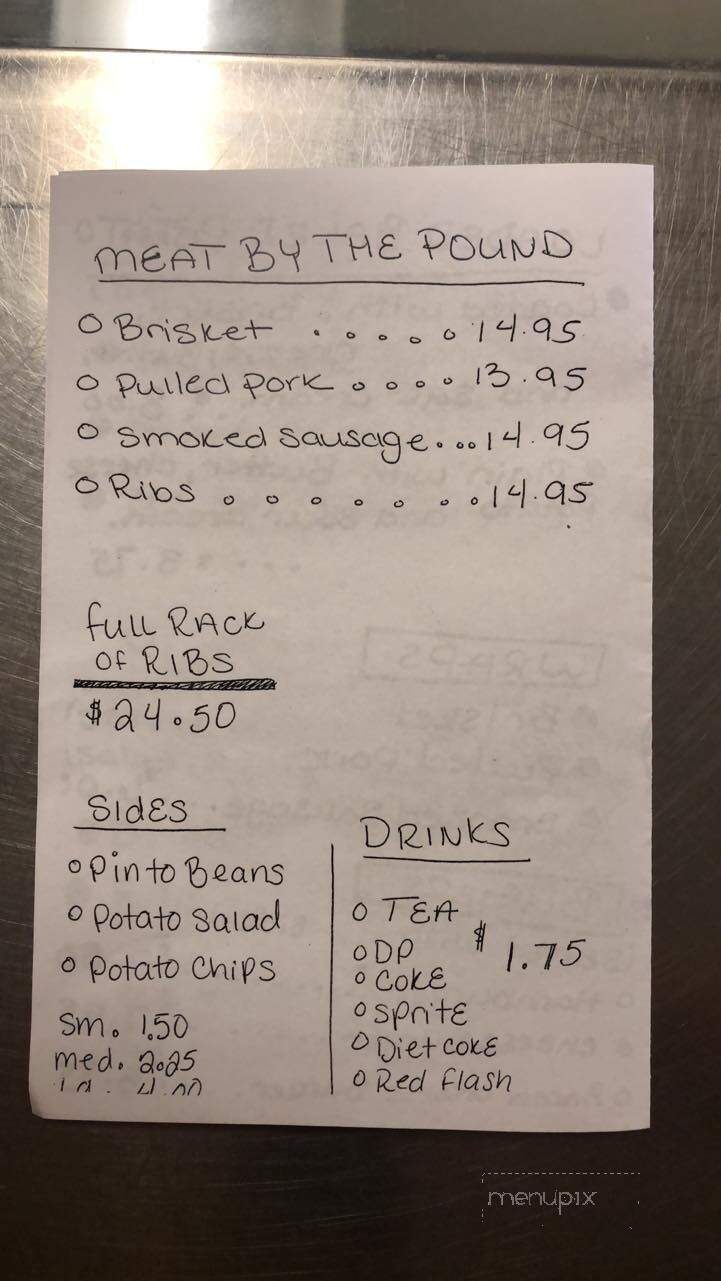 MEAT BY THE POUND
Brisket . . . . . 14.95
Pulled pork . . . . 13.95
smoked sausage. ... 14.95
Ribs . . . . . . . . 14.95
full RACK
of RIBS
$24.50
SidES
Pinto Beans
Potato salad
Potato Chips
sm. 1.50
med. 2.25
DRINKS
TEA
DP
$1.75
COKE
SpritE
Diet cokE
Red flash
menupix